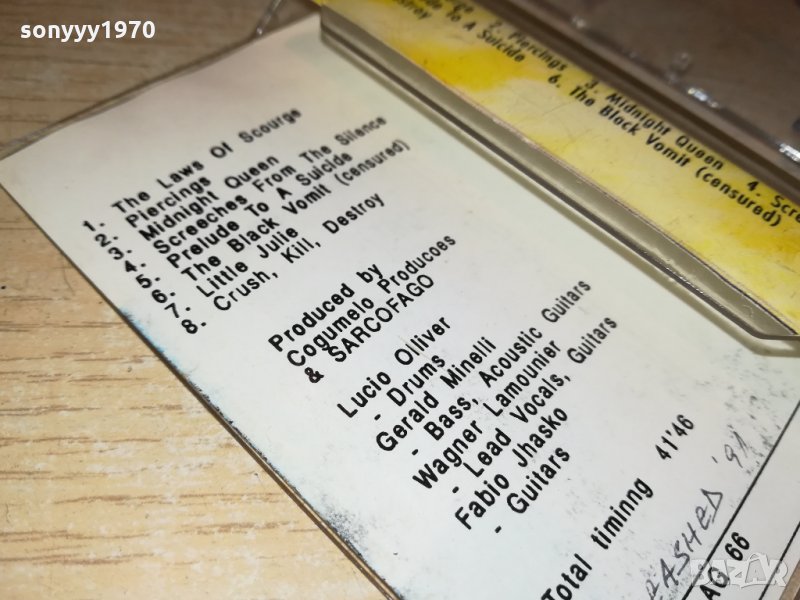 sonyyy1970
2. Piercings 3. Midnight Queen 4.
To A Suicide 6. The Black Vomit (censured)
1. The Laws Of Scourge
2. Piercings
3. Midnight Queen
4. Screeches From The Silence
5. Prelude To A Suicide
6. The Black Vomit (censured)
7. Little Julie
8. Crush, Kill, Destroy
Produced by
Cogumelo Producoes
& SARCOFAGO
Lucio Olliver
- Drums
Gerald Minelli
- Bass, Acoustic Guitars
Wagner Lamounier
- Lead Vocals, Guitars
Fabio Jhasko
- Guitars
Total timinng 41'46
'91
66
BAZAR